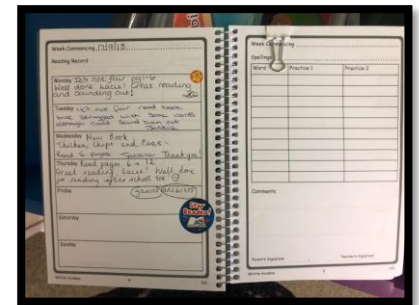 Week Commencing 17/9/18
Reading Record
Monday It's not fair pg 1-6
Well done Lacie! Great reading
and sounding out!
Tuesday It's not fair read book
but struggled with some words
although could sound them out
Wednesday New Book
Chicken, Chips and Peas -
Read 6 pages Thank you!
Thursday Read pages 6 + 12
Great reading, Lacie! Well done
for reading after school too
Friday
Star
Reader!
Saturday
Sunday
Week Commencing
Spellings
Word Practice 1 Practice 2
Comments
Parent's Signature Teacher's Signature